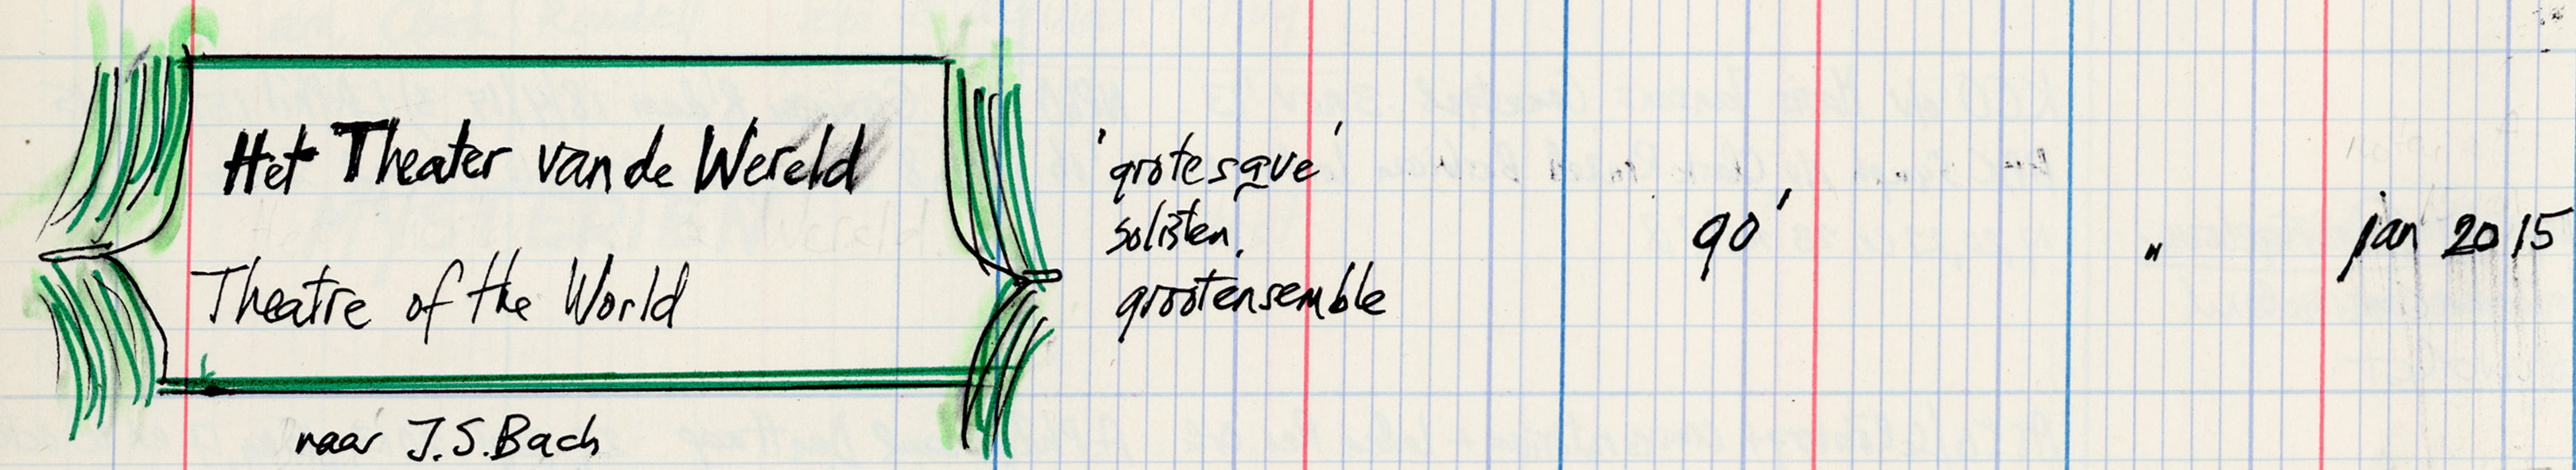 Het Theater van de Wereld
Theatre of the World
'grotesque'
solisten,
grootensemble
90'
"
jan 2015
naar J.S. Bach